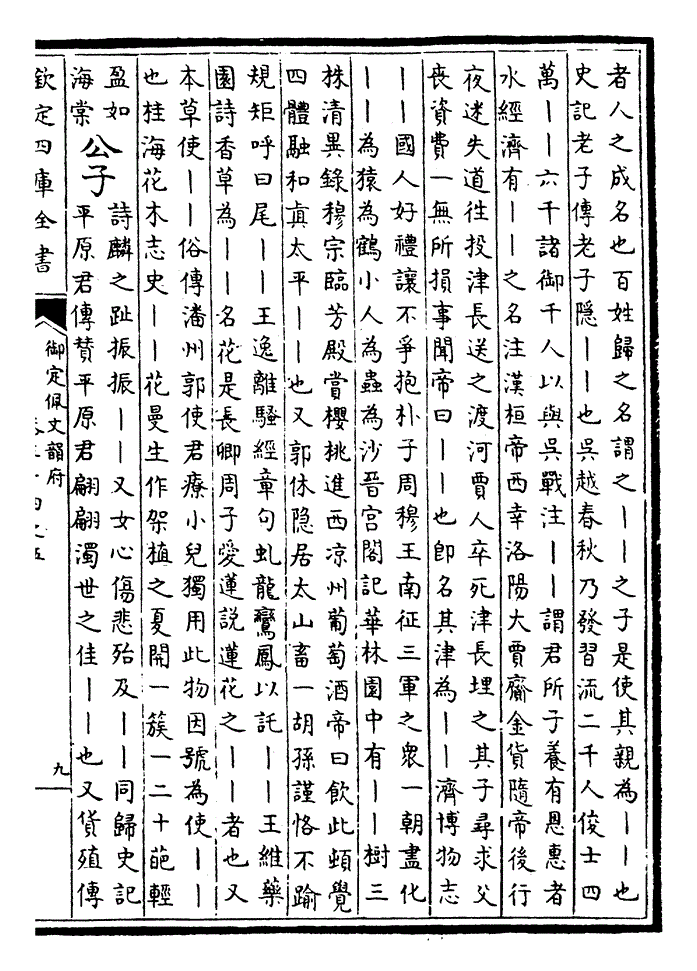 者人之成名也百姓歸之名謂之||之子是使其親為||也
史記老子傳老子隱||也吳越春秋乃發習流二千人俊士四
萬||六千諸御千人以與吳戰注||謂君所子養有恩惠者
水經濟有||之名注漢桓帝西幸洛陽大賈齎金貨隨帝後行
夜迷失道往投津長送之渡河賈人卒死津長埋之其子尋求父
喪資費一無所損事聞帝曰||也即名其津為||濟博物志
||國人好禮讓不爭抱朴子周穆王南征三軍之衆一朝盡化
||為猿為鶴小人為蟲為沙晉宮閣記華林園中有||樹三
株清異錄穆宗臨芳殿賞櫻桃進西凉州葡萄酒帝曰飲此頓覺
四體融和真太平||也又郭休隐居太山畜一胡孫謹恪不踰
規矩呼曰尾||王逸離騷經章句虬龍鸞鳳以託||王維藥
園詩香草為||名花是長卿周子愛蓮説蓮花之||者也又
本草使||俗傳潘州郭使君療小兒獨用此物因號為使||
也桂海花木志史||花曼生作架植之夏開一簇一二十葩輕
盈如
海棠
公子
詩麟之趾振振||又女心傷悲殆及||同歸史記
平原君傳賛平原君翩翩濁世之佳||也又貨殖傳
欽定四庫全書
御定佩文韻府
卷三十四之五
九